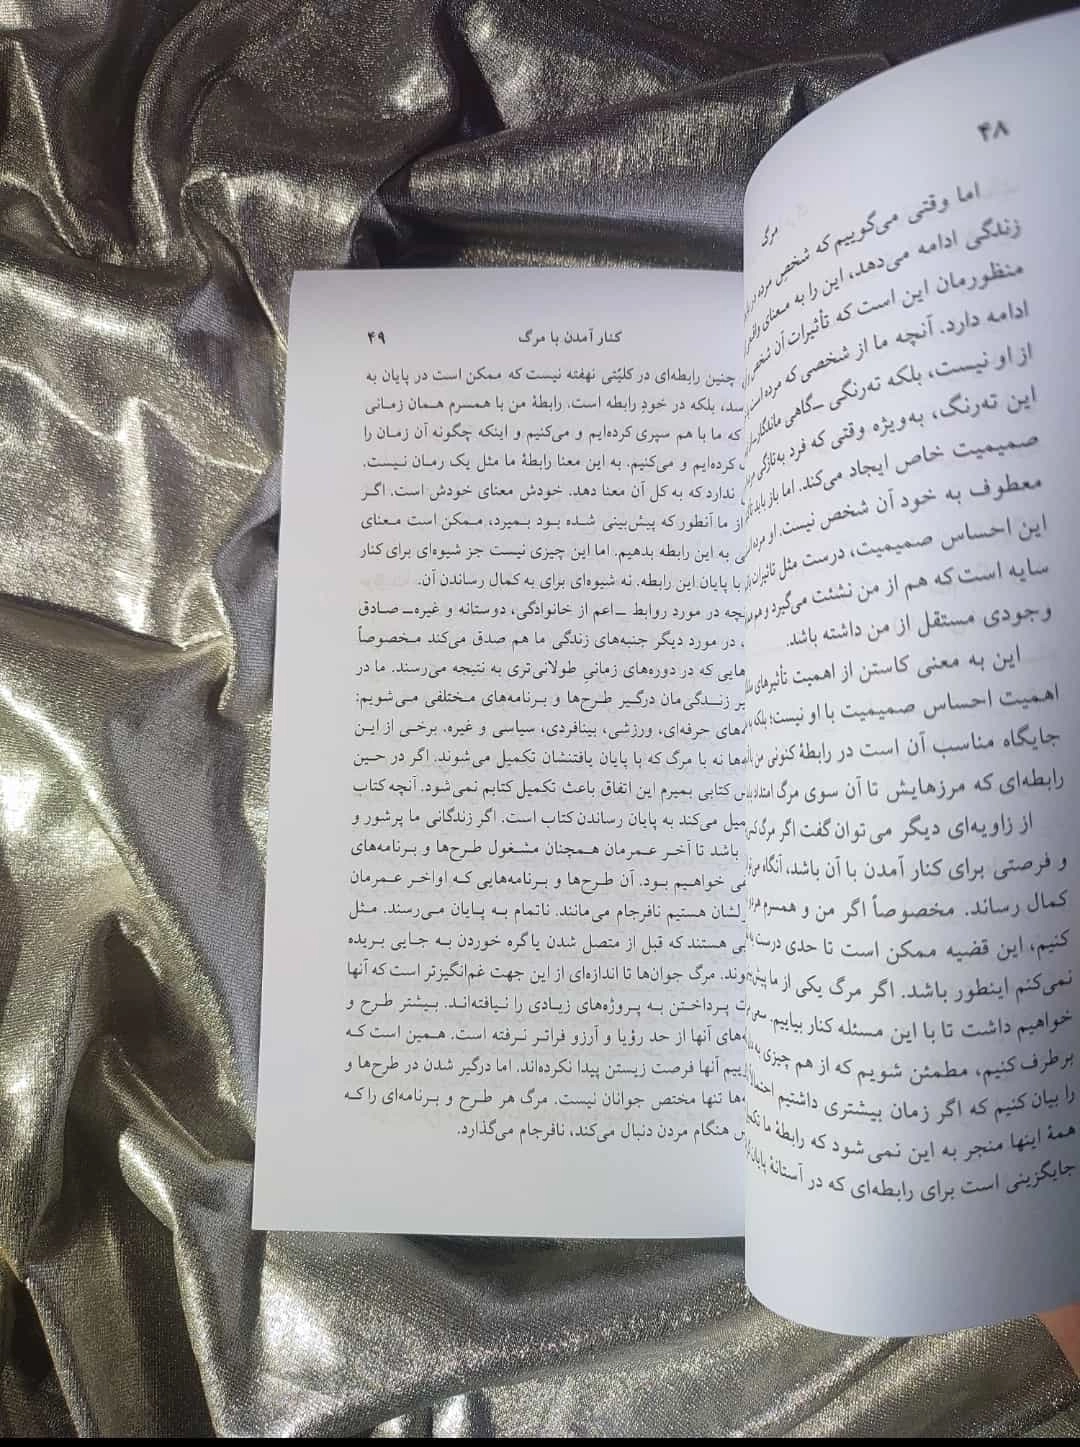 ۴۸
مرگ
اما وقتی می‌گوییم که شخصِ مرده در
زندگی ادامه می‌دهد، این را به معنای
منظورمان این است که تأثیرات آن شخص
ادامه دارد. آنچه ما از شخصی که مرده است
از او نیست، بلکه ته‌رنگی –گاهی ماندگار
این ته‌رنگ، به‌ویژه وقتی که فرد به‌تازگی
صمیمیت خاص ایجاد می‌کند. اما باز باید
معطوف به خود آن شخص نیست. او مرده
این احساس صمیمیت، درست مثل تاثیرات
سایه است که هم از من نشئت می‌گیرد و هم
وجودی مستقل از من داشته باشد.
این به معنی کاستن از اهمیت تأثیرهای
اهمیت احساس صمیمیت با او نیست؛ بلکه
جایگاه مناسب آن است در رابطهٔ کنونی من
رابطه‌ای که مرزهایش تا آن سوی مرگ امتداد
از زاویه‌ای دیگر می‌توان گفت اگر مرگ
و فرصتی برای کنار آمدن با آن باشد، آنگاه
کمال رساند. مخصوصاً اگر من و همسرم
کنیم، این قضیه ممکن است تا حدی درست
نمی‌کنم اینطور باشد. اگر مرگ یکی از ما
خواهیم داشت تا با این مسئله کنار بیاییم. سعی
برطرف کنیم، مطمئن شویم که از هم چیزی به
را بیان کنیم که اگر زمان بیشتری داشتیم
همهٔ اینها منجر به این نمی‌شود که رابطهٔ ما
جایگزینی است برای رابطه‌ای که در آستانهٔ پایان
کنار آمدن با مرگ ۴۹
چنین رابطه‌ای در کلیّتی نهفته نیست که ممکن است در پایان به
بلکه در خودِ رابطه است. رابطهٔ من با همسرم همان زمانی
که ما با هم سپری کرده‌ایم و می‌کنیم و اینکه چگونه آن زمان را
کرده‌ایم و می‌کنیم. به این معنا رابطهٔ ما مثل یک رمان نیست.
ندارد که به کل آن معنا دهد. خودش معنای خودش است. اگر
از ما آنطور که پیش‌بینی شده بود بمیرد، ممکن است معنای
به این رابطه بدهیم. اما این چیزی نیست جز شیوه‌ای برای کنار
با پایان این رابطه. نه شیوه‌ای برای به کمال رساندن آن.
در مورد روابط –اعم از خانوادگی، دوستانه و غیره– صادق
در مورد دیگر جنبه‌های زندگی ما هم صدق می‌کند مخصوصاً
که در دوره‌های زمانیِ طولانی‌تری به نتیجه می‌رسند. ما در
زندگی‌مان درگیر طرح‌ها و برنامه‌های مختلفی می‌شویم:
حرفه‌ای، ورزشی، بینافردی، سیاسی و غیره. برخی از این
نه با مرگ که با پایان یافتنشان تکمیل می‌شوند. اگر در حین
کتابی بمیرم این اتفاق باعث تکمیل کتابم نمی‌شود. آنچه کتاب
می‌کند به پایان رساندن کتاب است. اگر زندگانی ما پرشور و
باشد تا آخر عمرمان همچنان مشغول طرح‌ها و برنامه‌های
خواهیم بود. آن طرح‌ها و برنامه‌هایی که اواخر عمرمان
هستیم نافرجام می‌مانند. ناتمام به پایان می‌رسند. مثل
هستند که قبل از متصل شدن یا گره خوردن به جایی بریده
مرگ جوان‌ها تا اندازه‌ای از این جهت غم‌انگیزتر است که آنها
پرداختن به پروژه‌های زیادی را نیافته‌اند. بیشتر طرح و
آنها از حد رؤیا و آرزو فراتر نرفته است. همین است که
آنها فرصت زیستن پیدا نکرده‌اند. اما درگیر شدن در طرح‌ها و
تنها مختص جوانان نیست. مرگ هر طرح و برنامه‌ای را که
هنگام مردن دنبال می‌کند، نافرجام می‌گذارد.